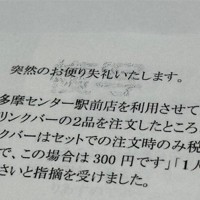 突然のお便り失礼いたします。
多摩センター駅前店を利用させて
リンクバーの2品を注文したところ
ンクバーはセットでの注文時のみ税
で、この場合は300円です」「1人
さいと指摘を受けました。